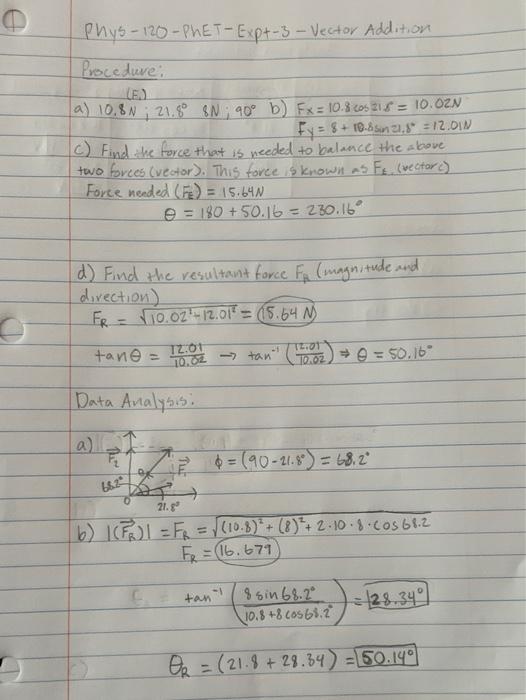 Phys-120-PhET-Expt-3-Vector Addition
Procedure:
(F₁)
a) 10.8N ; 21.8° 8N ; 90° b) Fx = 10.8 cos 21.8 = 10.02N
Fy = 8 + 10.8 sin 21.8° = 12.01N
c) Find the force that is needed to balance the above
two forces (vector). This force is known as F_E. (vector c)
Force needed (F_E) = 15.64N
θ = 180 + 50.16 = 230.16°
d) Find the resultant force F_R (magnitude and
direction)
F_R = √10.02² + 12.01² = 15.64 N
tanθ = 12.01/10.02 → tan⁻¹ (12.01/10.02) ⇒ θ = 50.16°
Data Analysis:
a) F₂ F₁ ϕ = (90 - 21.8°) = 68.2°
68.2°
21.8°
b) |(F_R)| = F_R = √(10.8)² + (8)² + 2·10·8·cos 68.2
F_R = 16.679
tan⁻¹ (8 sin 68.2° / 10.8 + 8 cos 68.2°) = 28.34°
θ_R = (21.8 + 28.34) = 50.14°